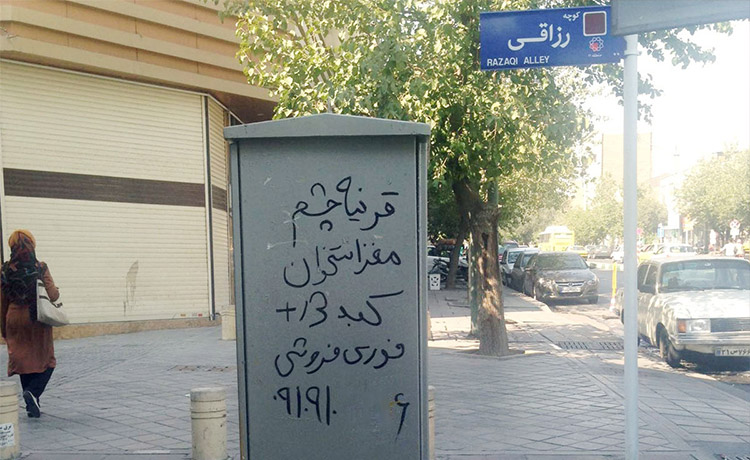 کوچه
رزاقی
RAZAQI ALLEY
قرنیه چشم
مغز استخوان
کبد B+
فوری فروشی
۰۹۱۰۹۱۰ ۶